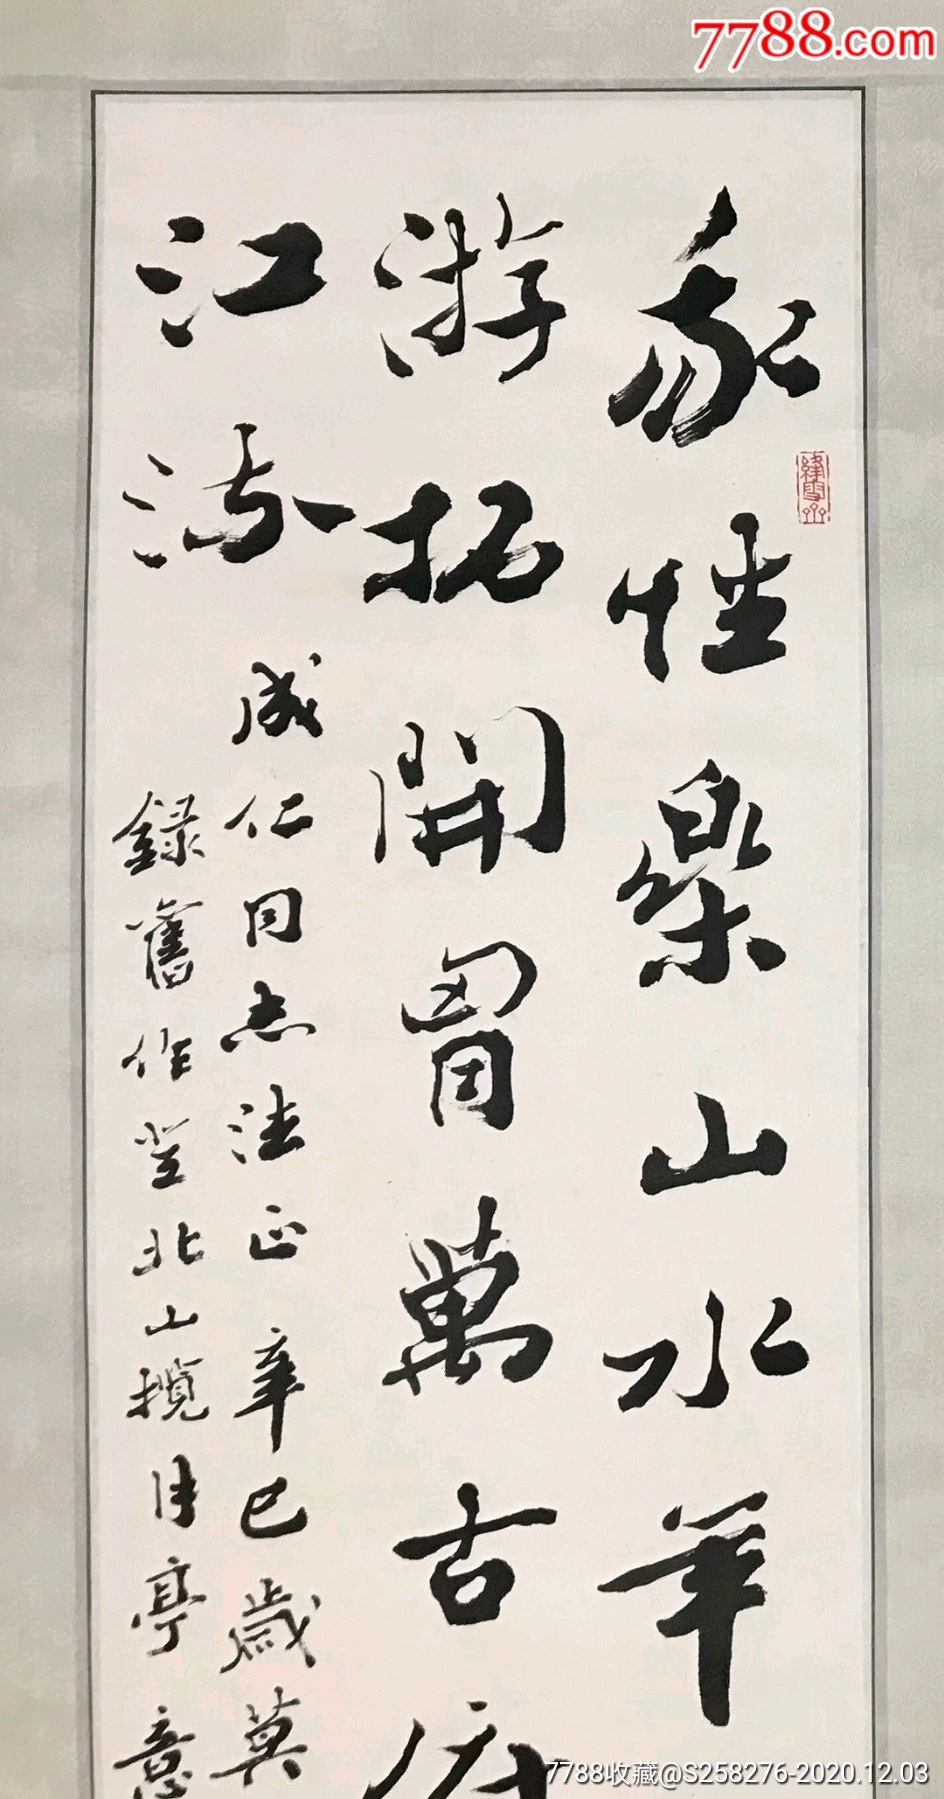 7788.com
我性樂山水年
游拓開胷萬古
江流
成仁同志法正辛巳歲莫
錄舊作登北山攬月亭意
7788收藏@S258276-2020.12.03